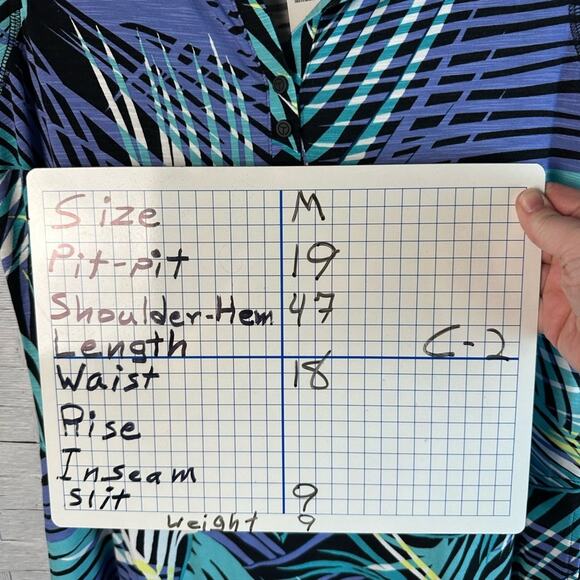 Size M
Pit-pit 19
Shoulder-Hem 47
Length C-2
Waist 18
Rise
Inseam
Slit 9
weight 9